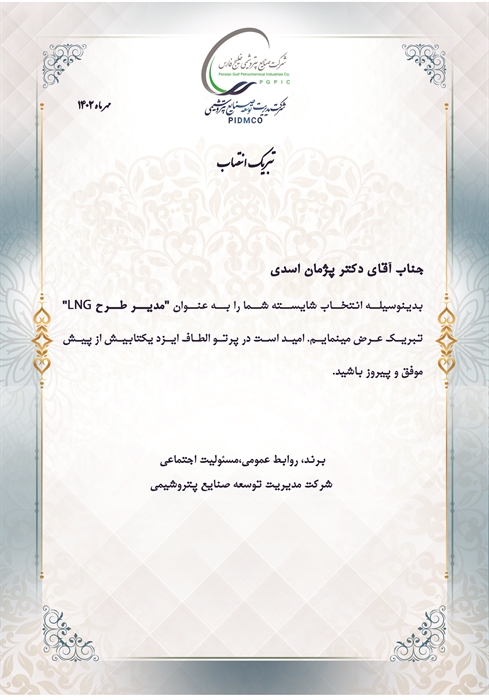 شرکت صنایع پتروشیمی خلیج فارس
Persian Gulf Petrochemical Industries Co.
PGPIC
شرکت مدیریت توسعه صنایع پتروشیمی
PIDMCO
مهرماه ۱۴۰۲
تبریک انتصاب
جناب آقای دکتر پژمان اسدی
بدینوسیله انتخاب شایسته شما را به عنوان "مدیر طرح LNG"
تبریک عرض مینمایم. امید است در پرتو الطاف ایزد یکتابیش از پیش
موفق و پیروز باشید.
برند، روابط عمومی،مسئولیت اجتماعی
شرکت مدیریت توسعه صنایع پتروشیمی